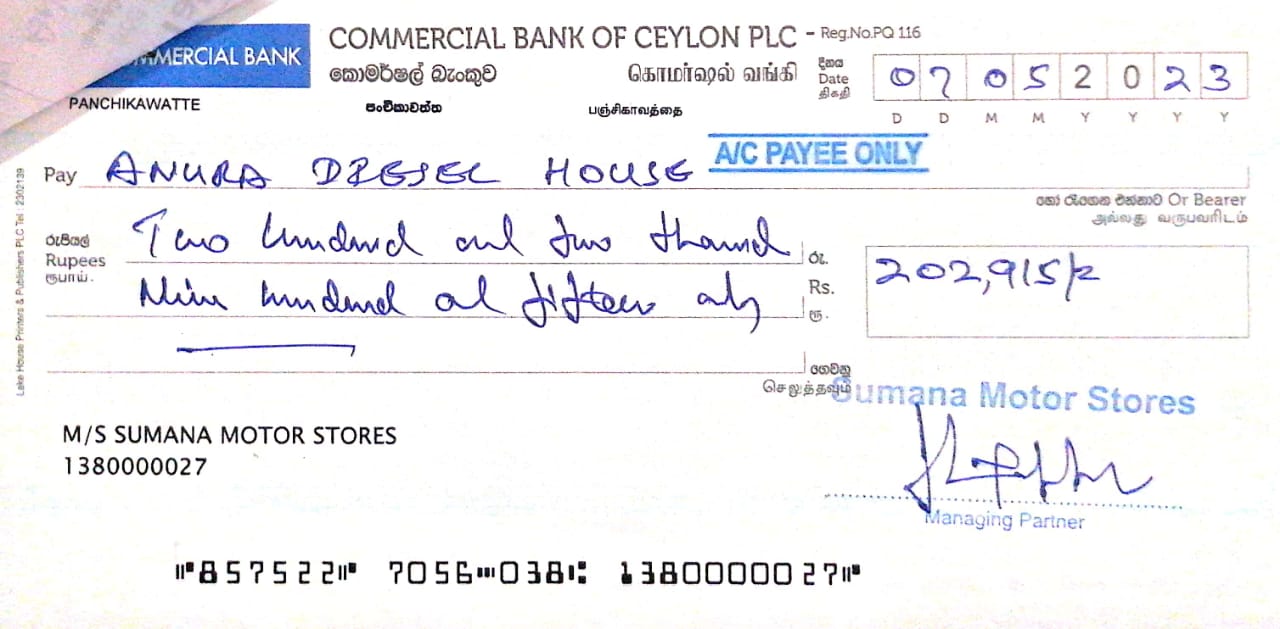 COMMERCIAL BANK
COMMERCIAL BANK OF CEYLON PLC - Reg.No.PQ 116
කොමර්ෂල් බැංකුව கொமர்ஷல் வங்கி
PANCHIKAWATTE පංචිකාවත්ත பஞ்சிகாவத்தை
දිනය
Date
திகதி
07 05 2023
D D M M Y Y Y Y
A/C PAYEE ONLY
Pay ANURA DIESEL HOUSE
හෝ රැගෙන එන්නාට Or Bearer
அல்லது வருபவரிடம்
රුපියල්
Rupees
ரூபாய்.
Two hundred and two thousand
Nine hundred and fifteen only
රු.
Rs.
ரூ.
202,915/=
ගෙවනු
செலுத்தவும்
Sumana Motor Stores
M/S SUMANA MOTOR STORES
1380000027
Managing Partner
⑈857522⑈ 7056⑉038⑆ 1380000027⑈
Lake House Printers & Publishers PLC Tel : 2302139